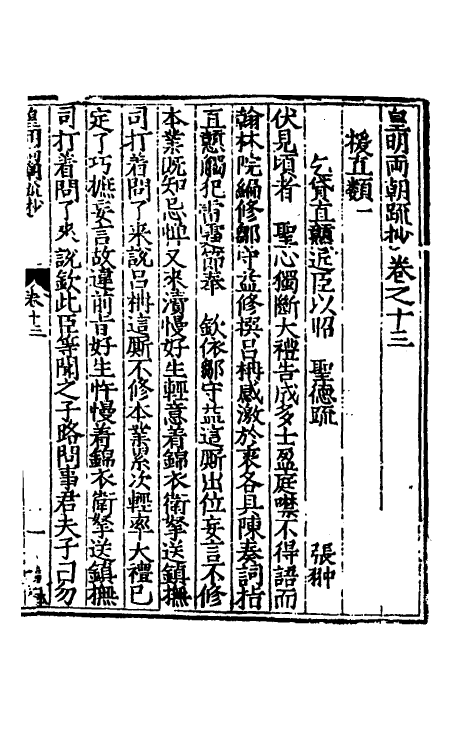 皇明兩朝疏抄卷之十三
援直類一
乞貸直戇近臣以昭　聖德疏　張翀
伏見頃者　聖心獨斷大禮告成多士盈庭噤不得語而
翰林院編修鄒守益修撰呂柟感激於衷各具陳奏詞指
直戇觸犯雷霆節奉　欽依鄒守益這厮出位妄言不修
本業既知忌憚又來瀆慢好生輕意着錦衣衛拏送鎮撫
司打着問了來說呂柟這厮不修本業累次輕率大禮已
定了巧摭妄言故違前旨好生忤慢着錦衣衛拏送鎮撫
司打着問了來　說欽此臣等聞之子路問事君夫子曰勿
皇明兩朝疏抄　卷十三　一